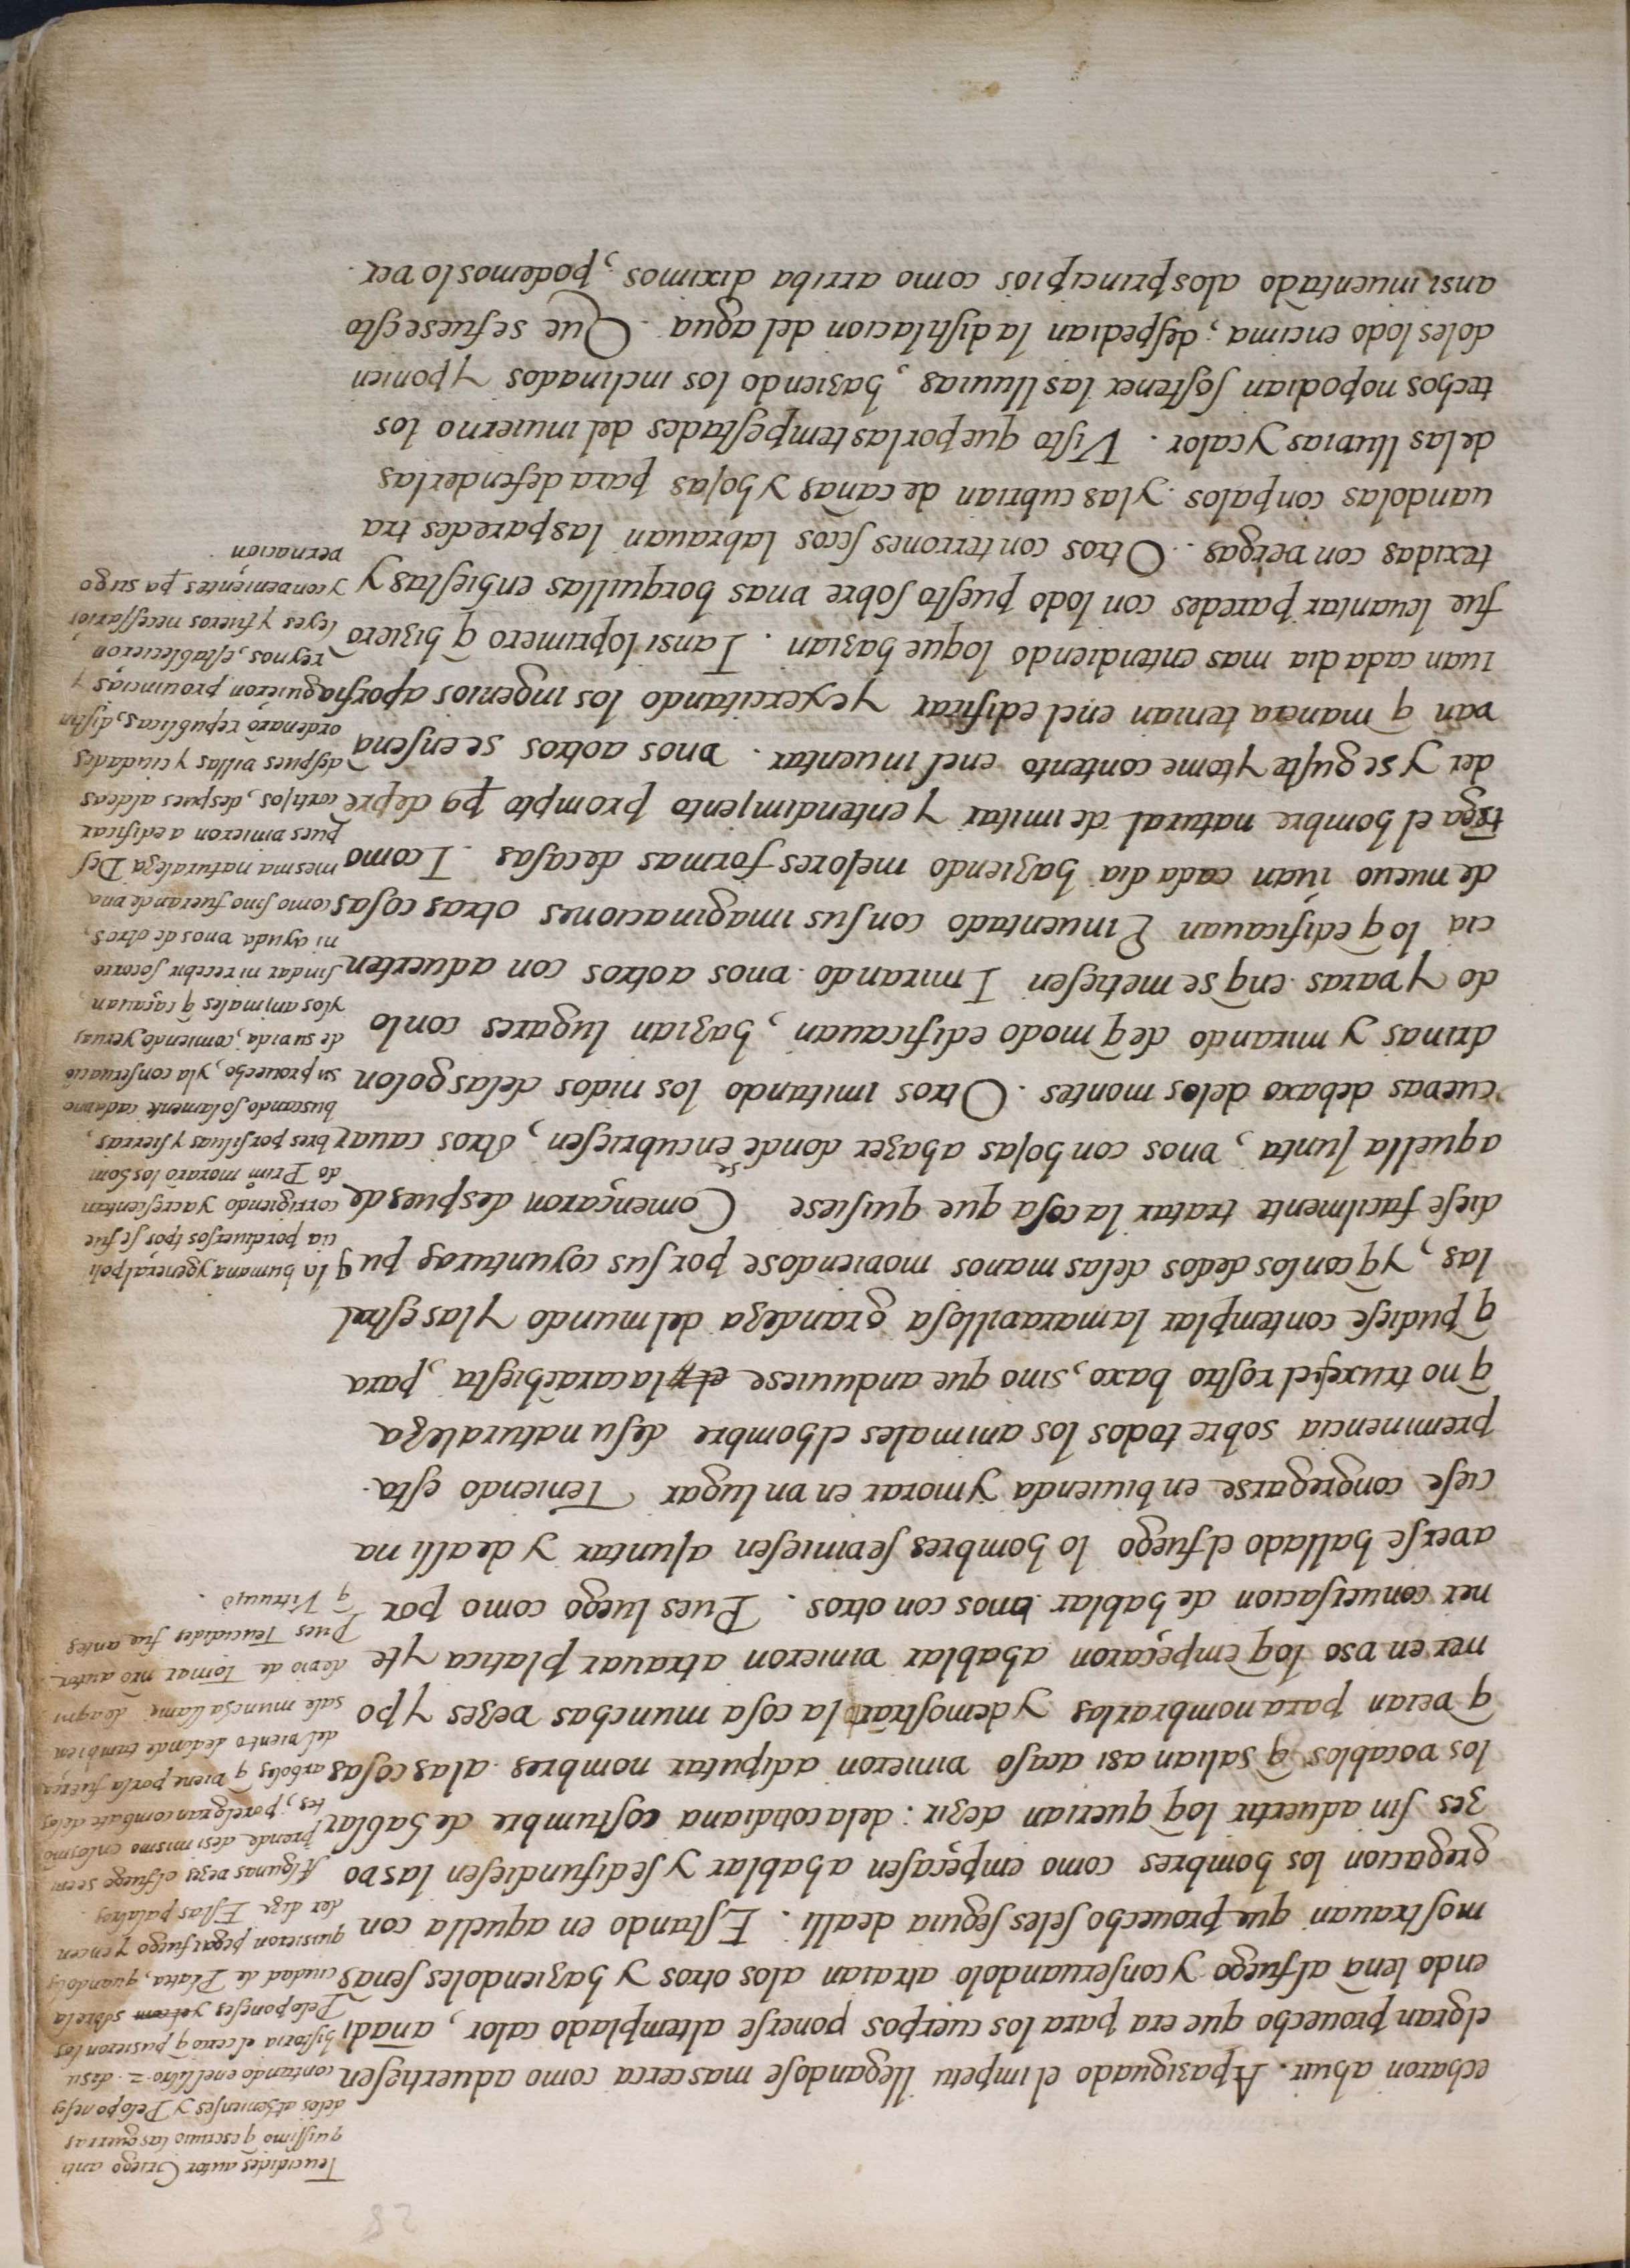 echaron ahuir. Apaziguado el impetu llegandose mas cerca como aduertiesen
el gran prouecho que era para los cuerpos ponerse al templado calor, añadi
endo leña al fuego y conseruandolo atraian alos otros y haziendoles señas
mostrauan que prouecho seles seguia de alli. Estando en aquella con
gregacion los hombres como empeçasen a hablar y se difundiesen las vo
zes sin aduertir lo q̃ querian dezir: dela cotidiana costumbre de hablar
los vocablos q̃ salian asi acaso vinieron adiputar nombres alas cosas
q̃ veian para nombrarlas y demostrar la cosa munchas vezes y po
ner en vso lo q̃ empeçaron ahablar vinieron atrauar platica y te
ner conuersacion de hablar vnos con otros. Pues luego como por
averse hallado el fuego lo hombres se viniesen ajuntar y de alli na
ciese congregarse en biuienda y morar en vn lugar Teniendo esta
preminencia sobre todos los animales el hombre de su naturaleza
q̃ no truxese el rostro baxo, sino que anduuiese la cara enhiesta, para
q̃ pudiese contemplar la marauillosa grandeza del mundo y las estrel
las, y q̃ con los dedos delas manos mouiendose por sus coyunturas pu
diese facilmente tratar la cosa que quisiese Començaron despues de
aquella junta, vnos con hojas ahazer donde se encubriesen, otros cauar
cuevas debaxo delos montes. Otros imitando los nidos delas golon
drinas y mirando de q̃ modo edificauan, hazian lugares con lo
do y varas en q̃ se metiesen I mirando vnos aotros con aduerten
cia lo q̃ edificauan E inuentado con sus imaginaciones otras cosas
de nueuo iuan cada dia haziendo mejores formas de casas I como
tẽga el hombre natural de imitar y entendimiento prompto pa depre
der y se guste y tome contento en el inuentar. vnos aotros se enseña
van q̃ manera tenian en el edificar y exercitando los ingenios aporfia
iuan cada dia mas entendiendo lo que hazian. I ansi lo primero q̃ hiziero
fue leuantar paredes con lodo puesto sobre vnas horquillas enhiestas y
texidas con vergas. Otros con terrones secos labrauan las paredes tra
uandolas con palos y las cubrian de cañas y hojas para defenderlas
de las lluvias y calor. Visto que por las tempestades del inuierno los
techos no podian sostener las lluuias, haziendo los inclinados y ponien
doles lodo encima; despedian la distilacion del agua. Que se fuese esto
ansi inuentado alos principios como arriba diximos, podemoslo ver.
Teucidides autor Griego anti
quissimo q̃ escriuio las guerras
delos athenienses y Peloponeses
contando enel libro .2. de su
historia el cerco q̃ pusieron los
Peloponeses sobre la
ciudad de Platea, quando les
quisieron pegar fuego y encen
der dize Estas palabras.
Algunas vezes el fuego se em
prende de si mismo en los mõ
tes, por el gran combate delos
arboles q̃ viene por la fuerça
del viento de donde tambien
sale muncha llama de aqui
devio de tomar nro autor
Pues Teucidides fue antes
q̃ Vitruuio.
q̃ la humana y general poli
cia por diuersos tpos se fue
corrigiendo y acrescentan
do Prim̃ moraro los hom
bres por siluas y sierras,
buscando solamente cada uno
su prouecho, y la conseruaciõ
de su vida, comiendo yeruas
y los animales q̃ caçauan,
sin dar ni recebir socorro
ni ayuda vnos de otros,
como sino fueran de una
mesma naturaleza Des
pues vinieron a edificar
cortijos, despues aldeas
despues villas y ciudades
ordenarõ republicas, distin
guieron prouincias y
reynos, establecieron
leyes y fueros necessarios
y convenientes pa su go
vernacion.
82